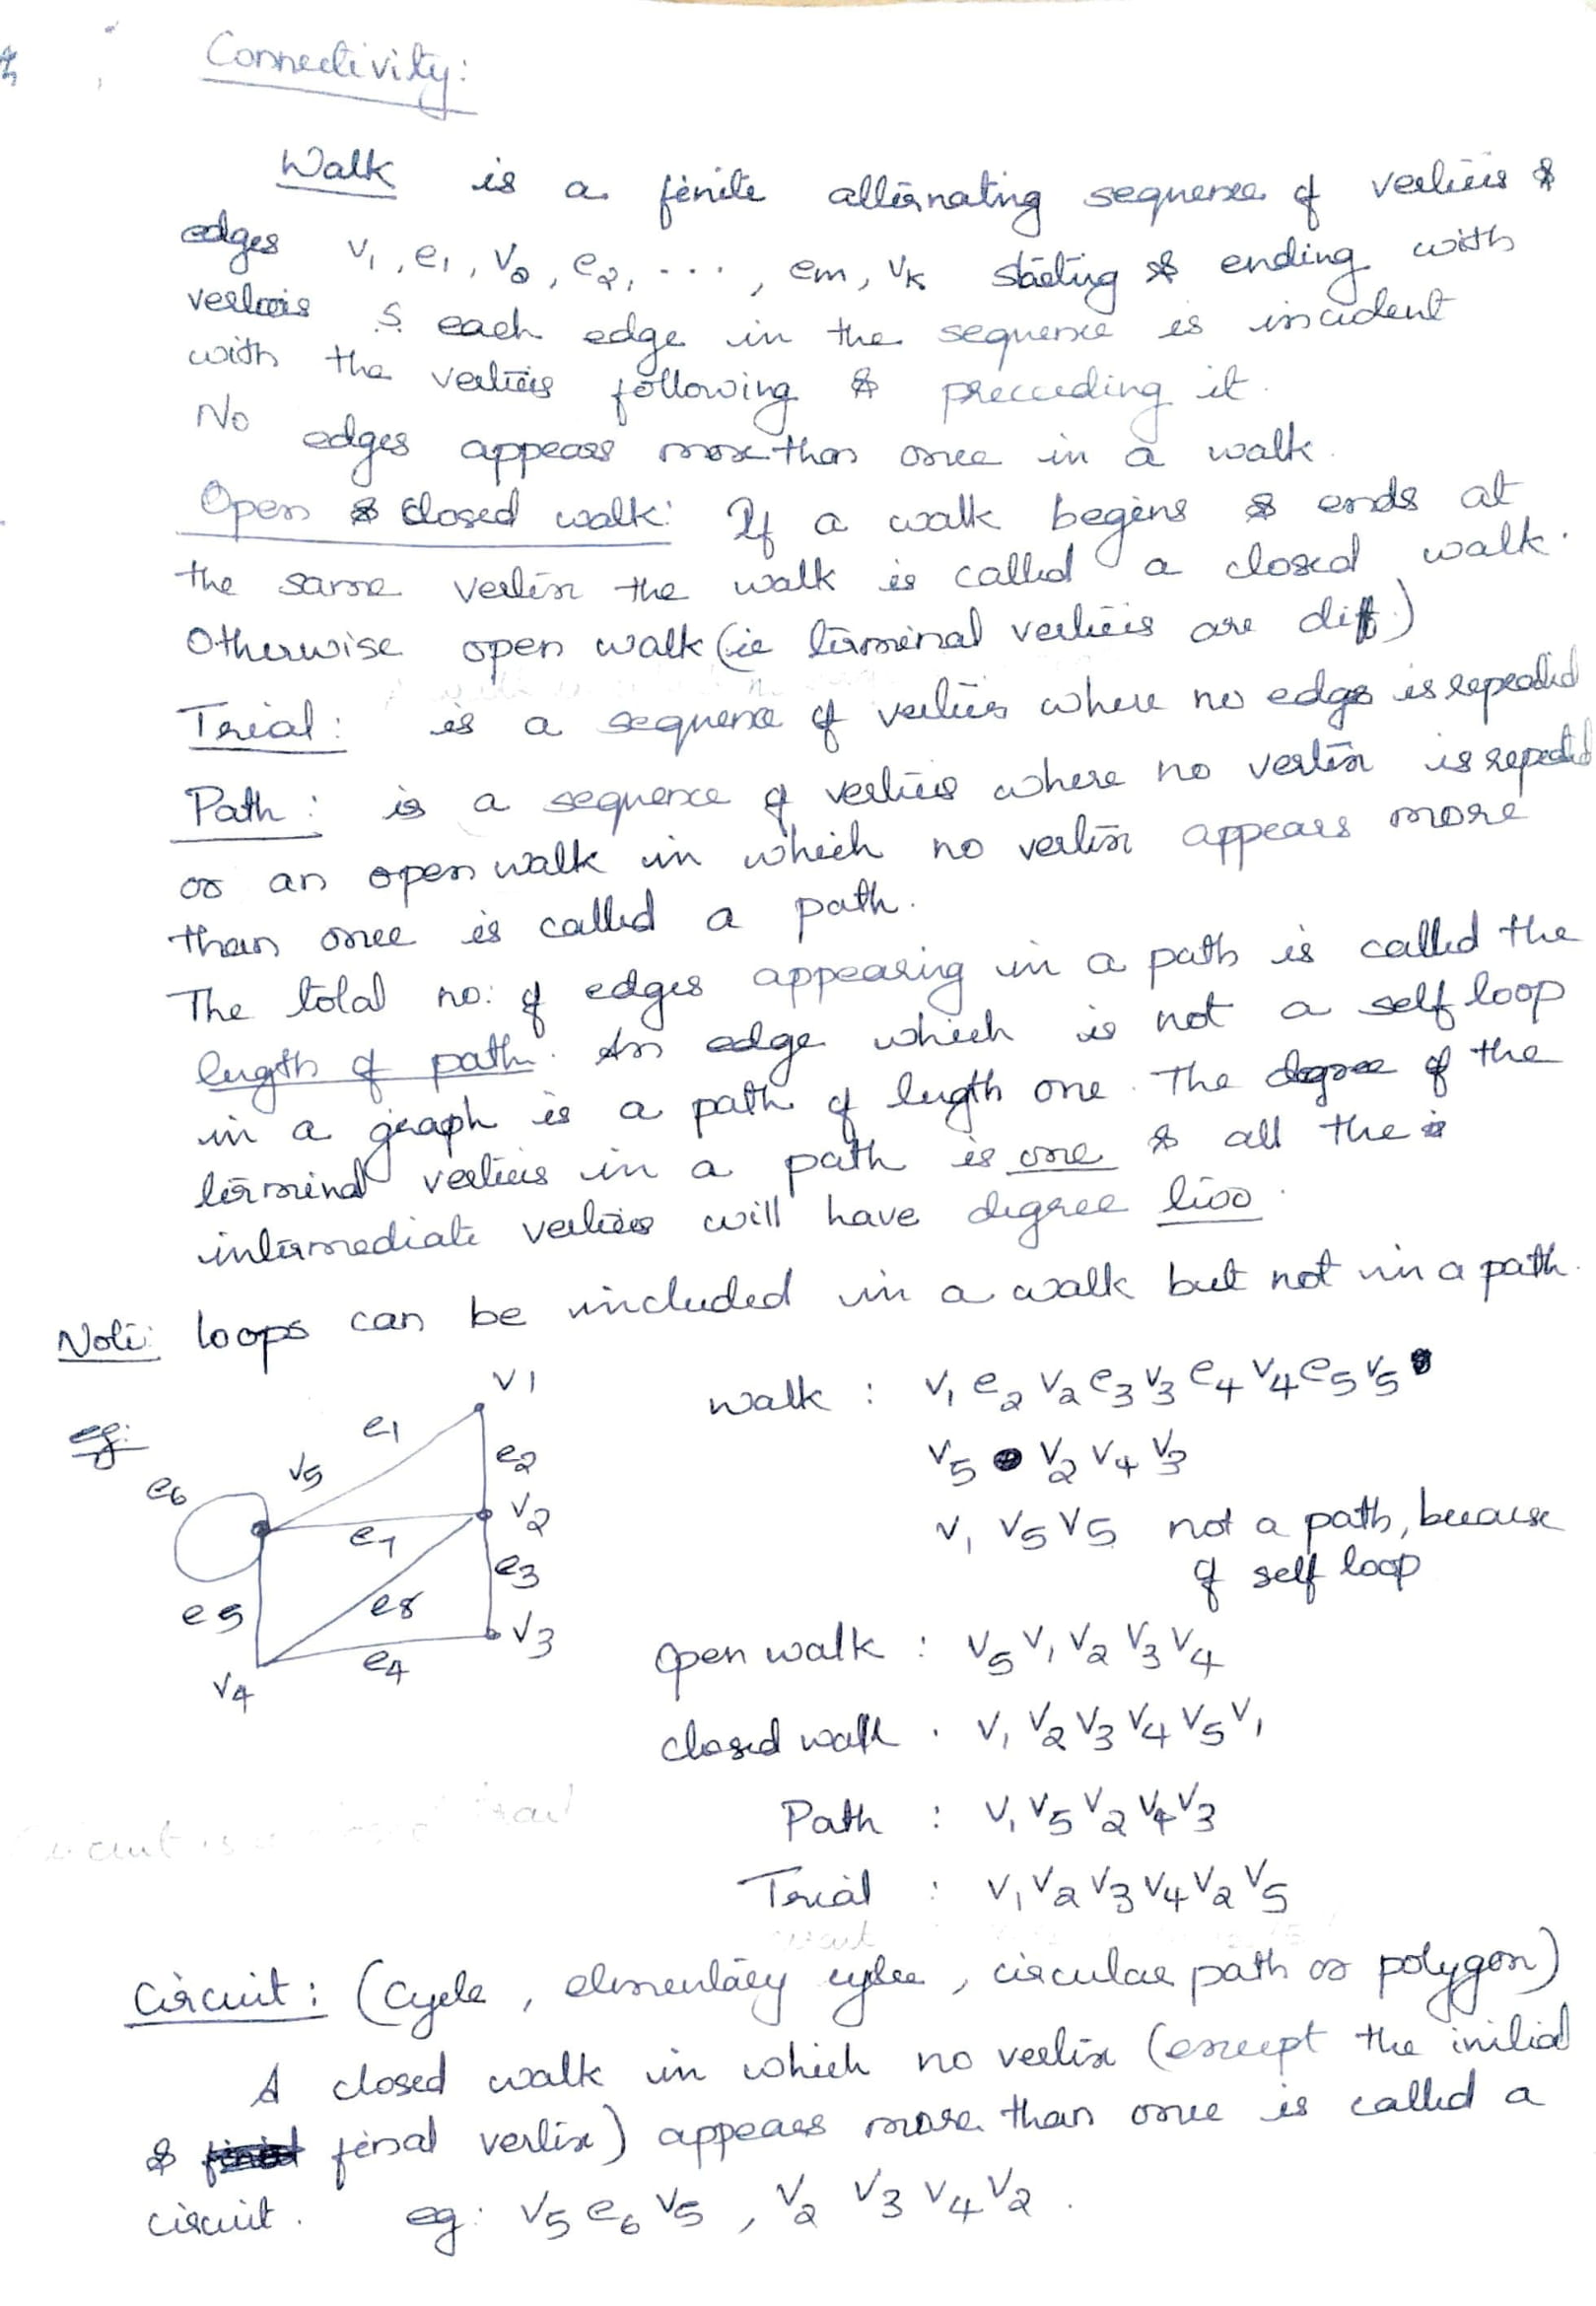 Connectivity:
Walk is a finite alternating sequence of vertices &
edges v1, e1, v2, e2, ..., em, vk starting & ending with
vertices & each edge in the sequence is incident
with the vertices following & preceeding it.
No edges appears more than once in a walk.
Open & closed walk: If a walk begins & ends at
the same vertex the walk is called a closed walk.
Otherwise open walk (ie terminal vertices are diff.)
Trial: is a sequence of vertices where no edge is repeated
Path: is a sequence of vertices where no vertex is repeated
or an open walk in which no vertex appears more
than once is called a path.
The total no: of edges appearing in a path is called the
length of path. An edge which is not a self loop
in a graph is a path of length one. The degree of the
terminal vertices in a path is one & all the
intermediate vertices will have degree two.
Note: loops can be included in a walk but not in a path.
eg:
v1
e1
e2
v5
e6
v2
e7
e3
e5
e8
v3
e4
v4
walk : v1 e2 v2 e3 v3 e4 v4 e5 v5
v5 v2 v4 v3
v1 v5 v5 not a path, because
of self loop
open walk : v5 v1 v2 v3 v4
closed walk . v1 v2 v3 v4 v5 v1
Path : v1 v5 v2 v4 v3
Trial : v1 v2 v3 v4 v2 v5
Circuit: (Cycle, elementary cycle, circular path or polygon)
A closed walk in which no vertex (except the initial
& final vertex) appears more than once is called a
circuit. eg: v5 e6 v5, v2 v3 v4 v2.